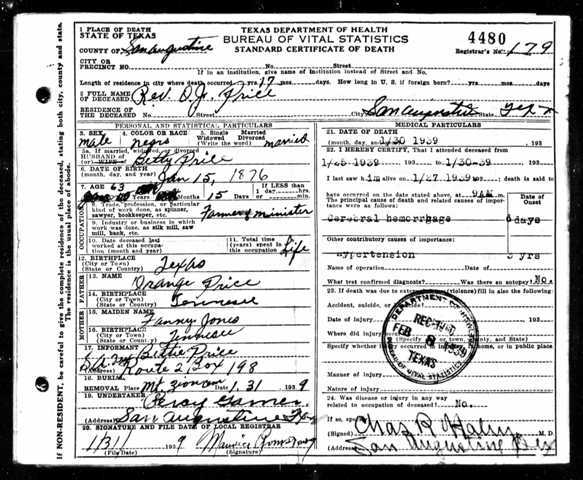 1 PLACE OF DEATH
STATE OF TEXAS
TEXAS DEPARTMENT OF HEALTH
BUREAU OF VITAL STATISTICS
STANDARD CERTIFICATE OF DEATH
4480
COUNTY OF San Augustine
Registrar's No. 179
CITY OR
PRECINCT NO. No. Street
If in an institution, give name of institution instead of street and No.
Length of residence in city where death occurred 17 yrs. mos. days. How long in U. S. if foreign born? yrs. mos. days
2 FULL NAME
OF DECEASED Rev. O.J. Price
RESIDENCE OF
THE DECEASED No. Street City San Augustine State Tex
PERSONAL AND STATISTICAL PARTICULARS
3. SEX male
4. COLOR OR RACE negro
5. Single Married
Widowed Divorced married
5a. If married, widowed or divorced
HUSBAND OF
or WIFE Betty Price
6. DATE OF BIRTH
(month, day, and year) Jan 15, 1876
7. AGE 63
15 days
If less than 1 day
hrs. min.
8. Trade, profession, or particular
kind of work done, as spinner,
sawyer, bookkeeper, etc. Farmer & minister
9. Industry or business in which
work was done, as silk mill, saw
mill, bank, etc.
10. Date deceased last
worked at this occupation
(month and year)
11. Total time
(years) spent
in this occupation Life
12. BIRTHPLACE
(City or Town)
(State or Country) Texas
13. NAME Orange Price
14. BIRTHPLACE
(City or Town)
(State or Country) Tennesee
15. MAIDEN NAME Fanney Jones
16. BIRTHPLACE
(City or Town)
(State or Country) Tennesee
17. INFORMANT Bettie Price
Route 2, Box 198
18. BURIAL
REMOVAL Place Mt. Zion Cem Date 1-31 1939
19. UNDERTAKER
(Address) San Augustine Tex
20. SIGNATURE AND FILE DATE OF LOCAL REGISTRAR
1/31 1939
(Signature)
MEDICAL PARTICULARS
21. DATE OF DEATH
(month, day, and year) 1/30 1939
22. I HEREBY CERTIFY, That I attended deceased from
1/25-1939 to 1/30-39 193
I last saw him alive on 1/27-1939 193 death is said to
have occurred on the date stated above at 9AM m.
The principal cause of death and related causes of importance
were as follows:
Date of Onset
Cerebral hemorrhage 6 days
Other contributory causes of importance:
Hypertension 5 yrs
Name of operation Date of
What test confirmed diagnosis? Was there an autopsy? No.
23. If death was due to external causes (violence) fill in also the following:
Accident, suicide, or
Date of injury 193
Where did injury
(Specify city or town, county, and State)
Specify whether injury occurred in industry, in home, or in public place
Manner of injury
Nature of injury
24. Was disease or injury in any way
related to occupation of deceased? No.
If so, specify
(Signed) Chas R Haley M.D.
(Address) San Augustine Tex
DEPARTMENT OF HEALTH
REC'D
FEB 8 1939
TEXAS
BUREAU OF VITAL STATISTICS
OCCUPATION
FATHER
MOTHER
IF NON-RESIDENT, be careful to give the complete residence of the deceased, stating both city, county and state.
The residence is the usual place of abode.